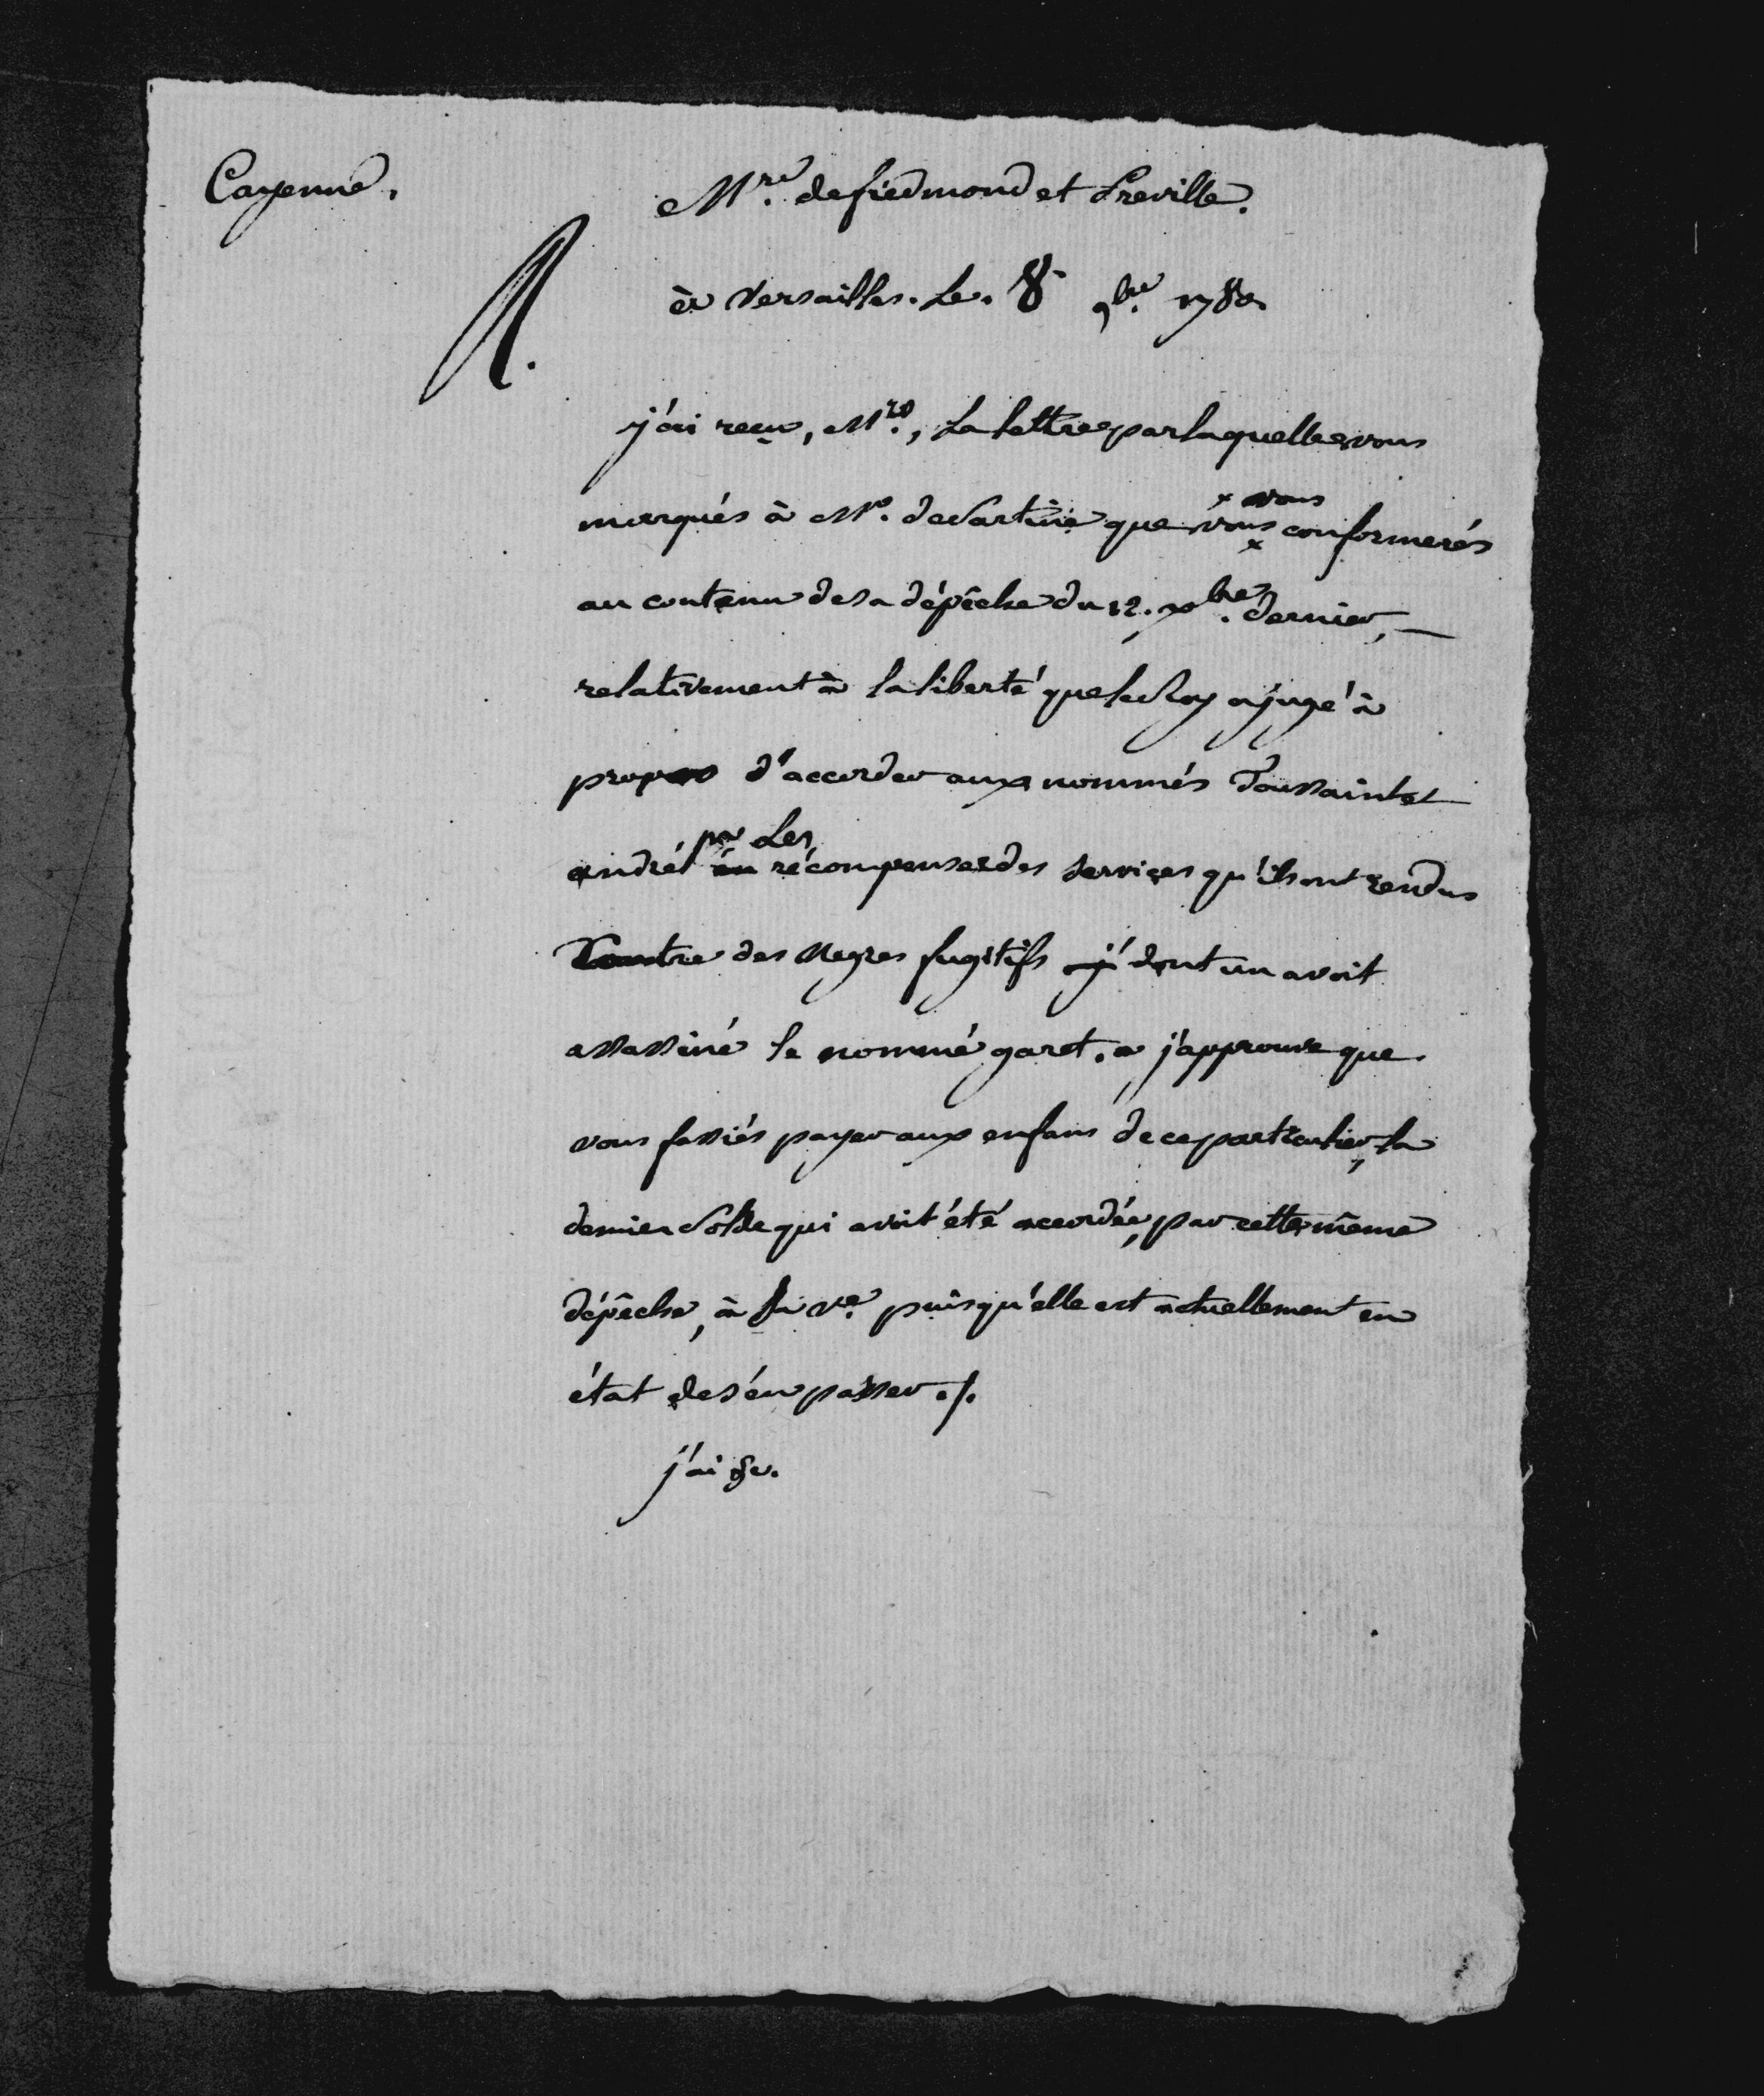 Cayenne.
Mrs. de fiedmond et Preville.
à Versailles. Le. 8 9bre. 1780.
j'ai reçu, Mrs., La lettre par laquelle vous
marqués à Mr. de Sartine que vous vous conformerés
au contenu de sa dépêche du 12. xbre. dernier,
relativement à la liberté que le Roy a jugé à
propos d'accorder aux nommés Toussaint et
andré pr Les récompenser des services qu'ils ont rendus
Contre des Negres fugitifs dont un avoit
assassiné le nommé garet. j'approuve que
vous fassiés payer aux enfans de ce particulier, la
demie Solde qui avoit été accordée, par cette même
dépêche, à sa ve. puisqu'elle est actuellement en
état de s'en passer ./.
j'ai &c.